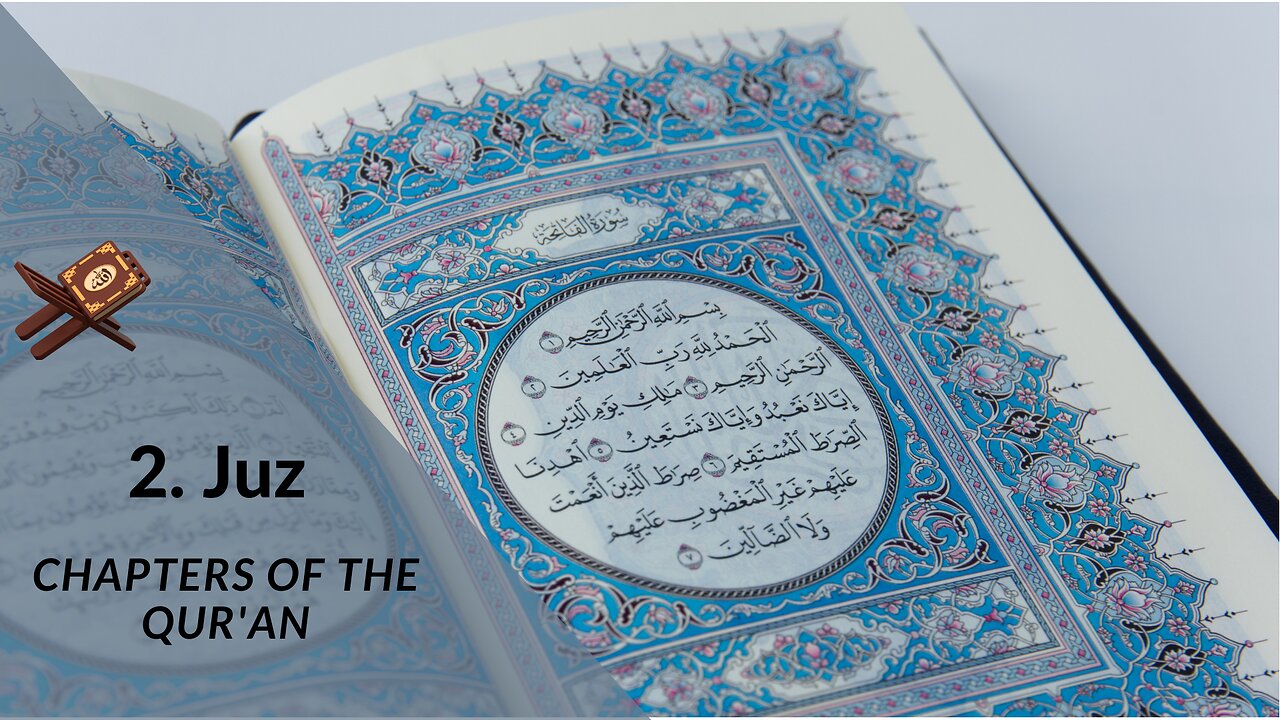 سُورَةُ الْفَاتِحَةِ
بِسْمِ ٱللَّهِ ٱلرَّحْمَٰنِ ٱلرَّحِيمِ ١
ٱلْحَمْدُ لِلَّهِ رَبِّ ٱلْعَٰلَمِينَ ٢
ٱلرَّحْمَٰنِ ٱلرَّحِيمِ ٣ مَٰلِكِ يَوْمِ ٱلدِّينِ ٤
إِيَّاكَ نَعْبُدُ وَإِيَّاكَ نَسْتَعِينُ ٥ ٱهْدِنَا
ٱلصِّرَٰطَ ٱلْمُسْتَقِيمَ ٦ صِرَٰطَ ٱلَّذِينَ أَنْعَمْتَ
عَلَيْهِمْ غَيْرِ ٱلْمَغْضُوبِ عَلَيْهِمْ
وَلَا ٱلضَّآلِّينَ ٧
الله
بِسْمِ ٱللَّهِ ٱلرَّحْمَٰنِ ٱلرَّحِيمِ
الٓمٓ ١ ذَٰلِكَ ٱلْكِتَٰبُ لَا رَيْبَ فِيهِ هُدًى
2. Juz
CHAPTERS OF THE
QUR'AN